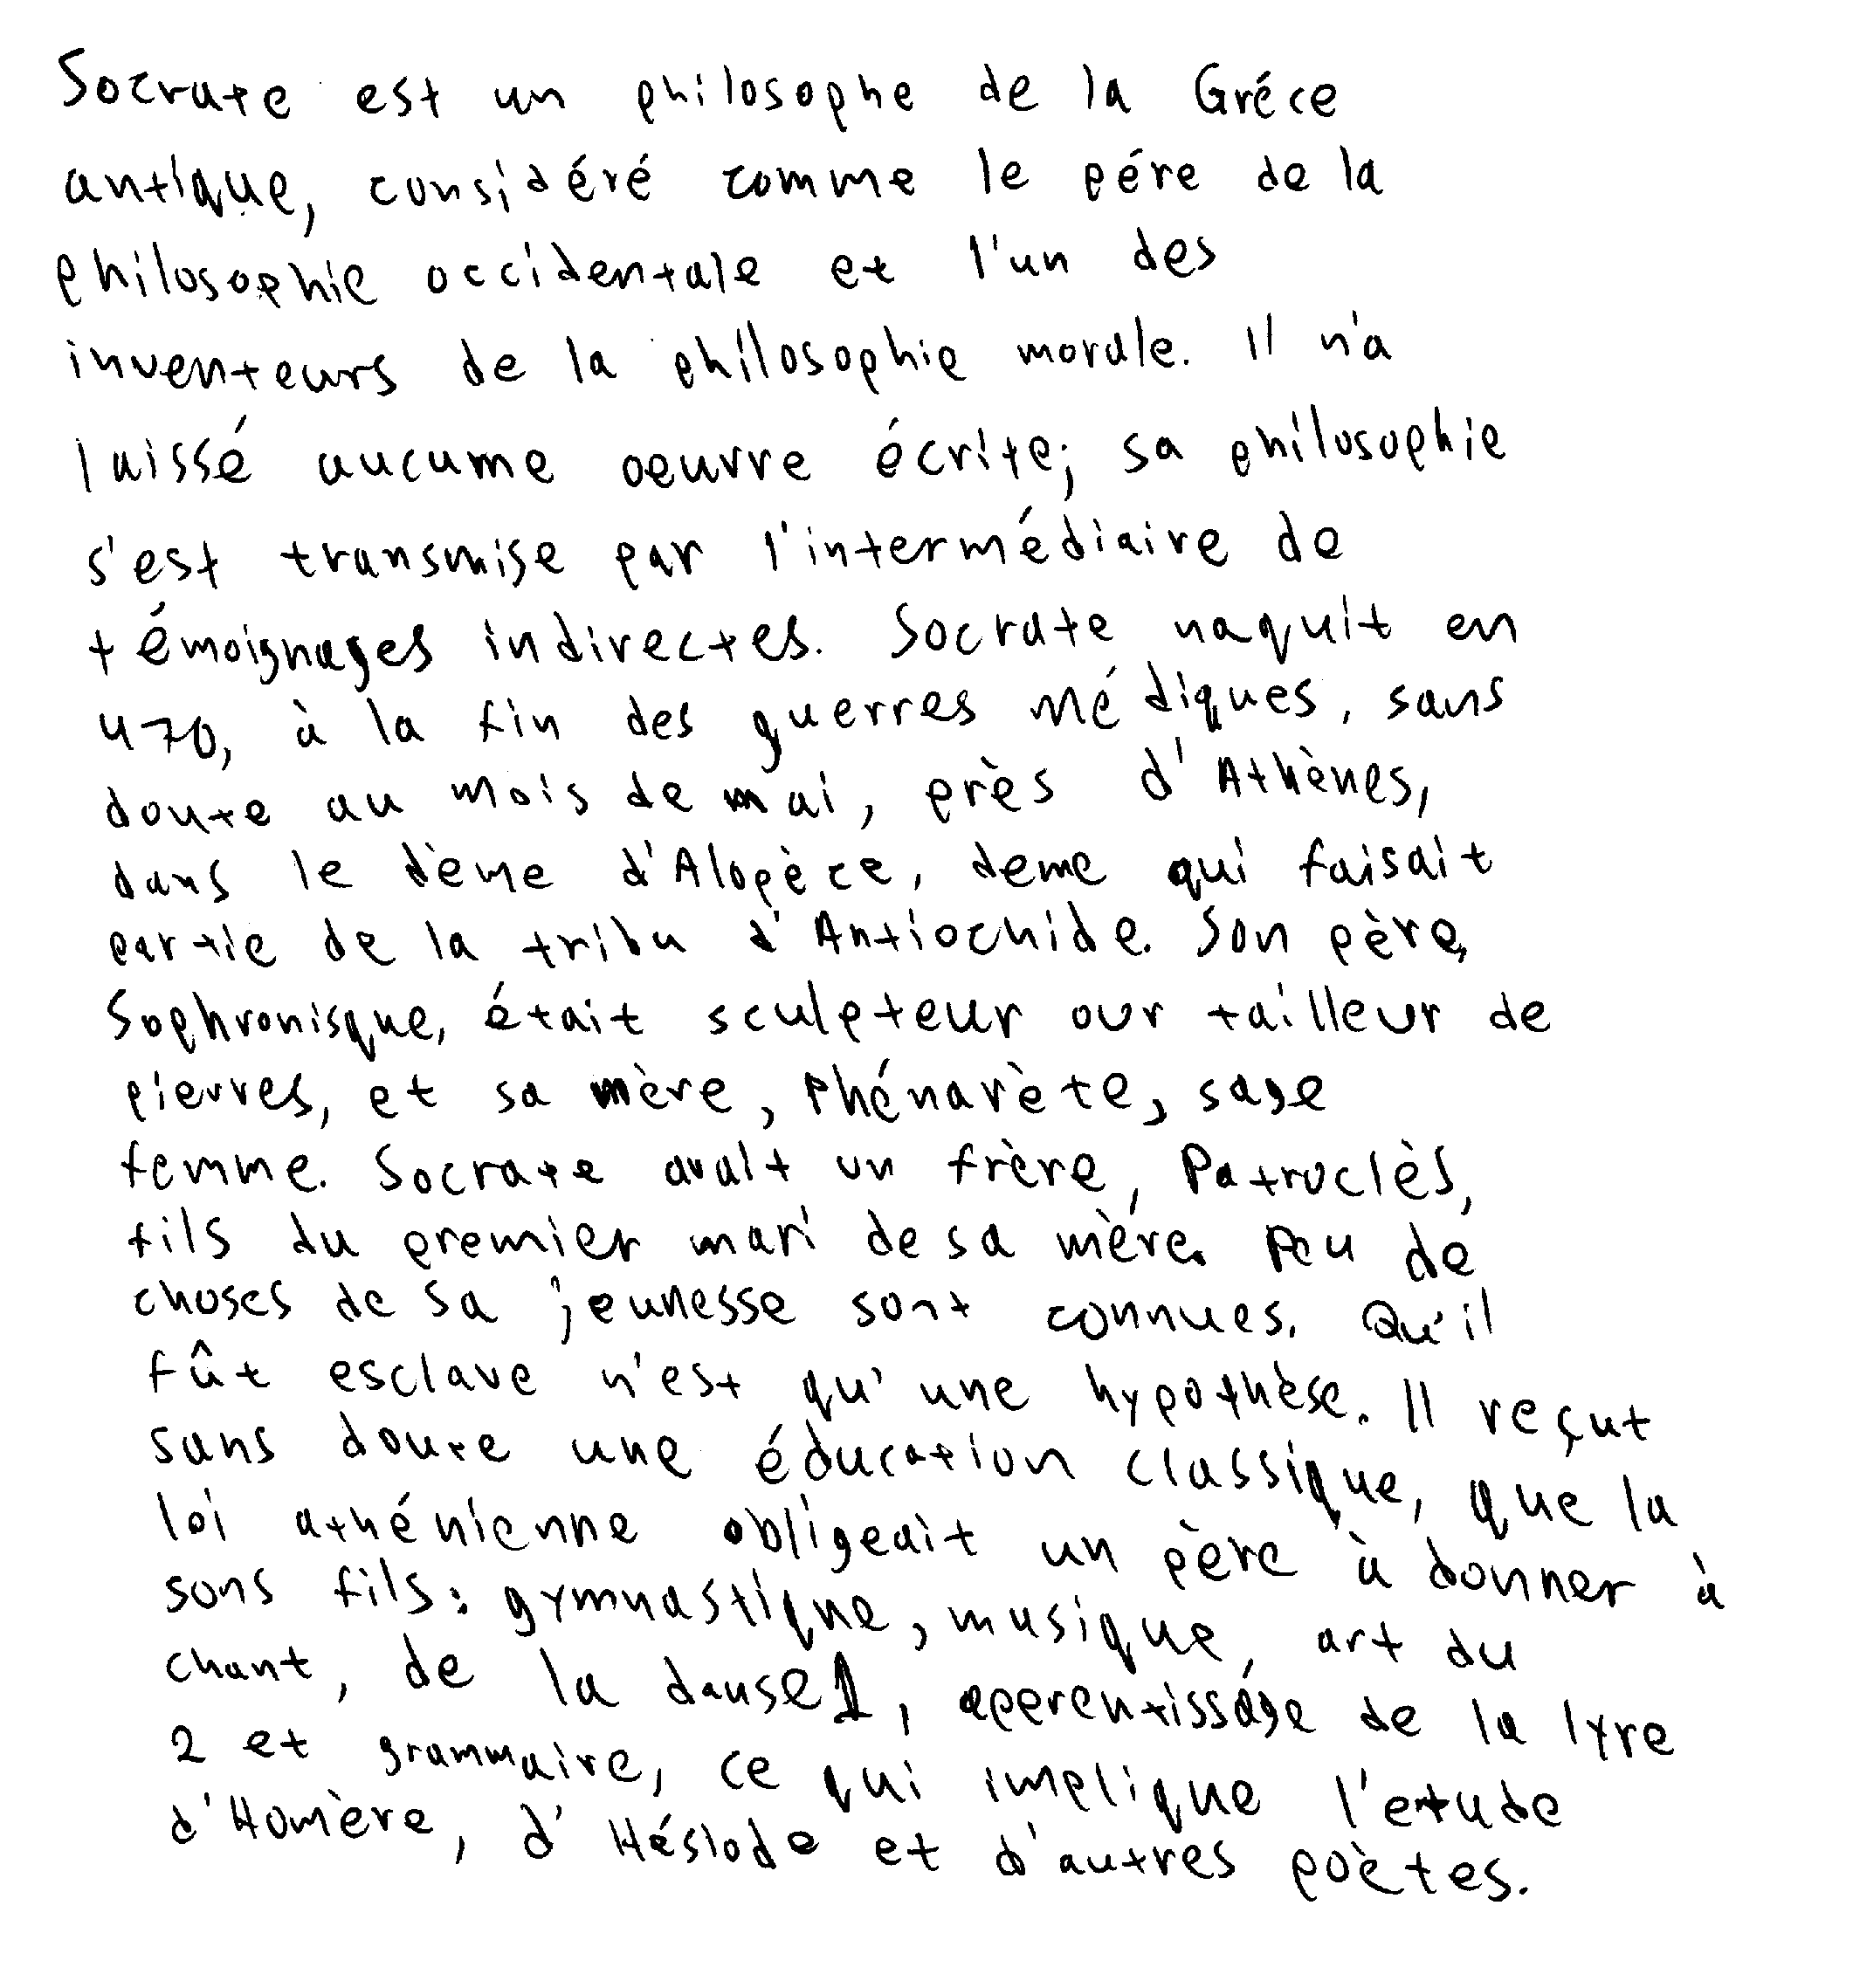 Socrate est un philosophe de la Gréce
antique, considéré comme le pére de la
philosophie occidentale et l'un des
inventeurs de la philosophie morale. Il n'a
laissé aucume oeuvre écrite; sa philosophie
s'est transmise par l'intermédiaire de
témoignages indirectes. Socrate naquit en
470, à la fin des guerres médiques, sans
doute au mois de mai, près d'Athènes,
dans le dème d'Alopèce, deme qui faisait
partie de la tribu d'Antiochide. Son père,
Sophronisque, était sculpteur our tailleur de
pierres, et sa mère, Phénarète, sage
femme. Socrate avait un frère, Patroclès,
fils du premier mari de sa mère. Peu de
choses de sa jeunesse sont connues. Qu'il
fût esclave n'est qu'une hypothèse. Il reçut
sans doute une éducation classique, que la
loi athénienne obligeait un père à donner à
sons fils: gymnastique, musique, art du
chant, de la danse1, aperentisságe de la lyre
2 et grammaire, ce qui implique l'etude
d'Homère, d'Hésiode et d'autres poètes.